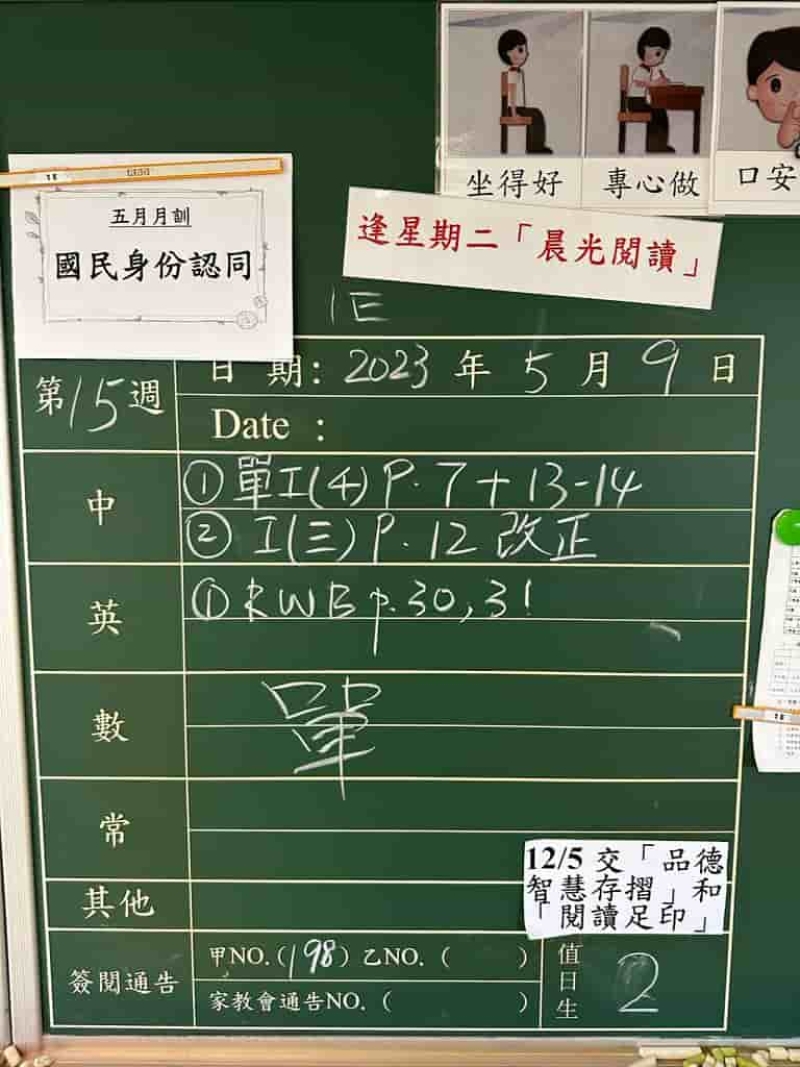 坐得好
專心做
口安
五月月訓
國民身份認同
逢星期二「晨光閱讀」
1E
第15週
日 期：2023 年 5 月 9 日
Date ：
中
①單工(4) P. 7 + 13-14
② 工(三) P. 12 改正
英
① RWB p. 30, 31
數
單
常
12/5 交「品德
智慧存摺」和
「閱讀足印」
其他
簽閱通告
甲NO. (198) 乙NO. ( )
家教會通告NO. ( )
值日生
2